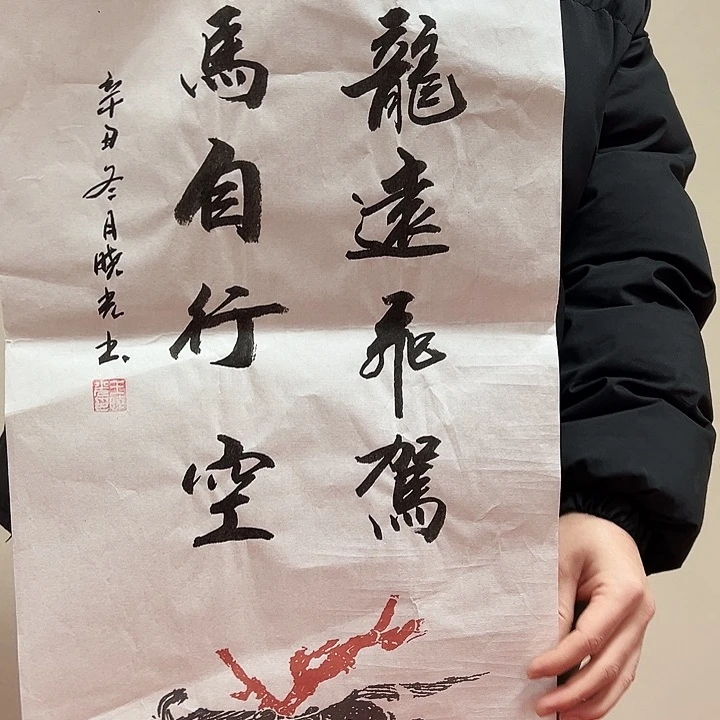 龍遠飛駕
馬自行空
辛丑冬月晓光书